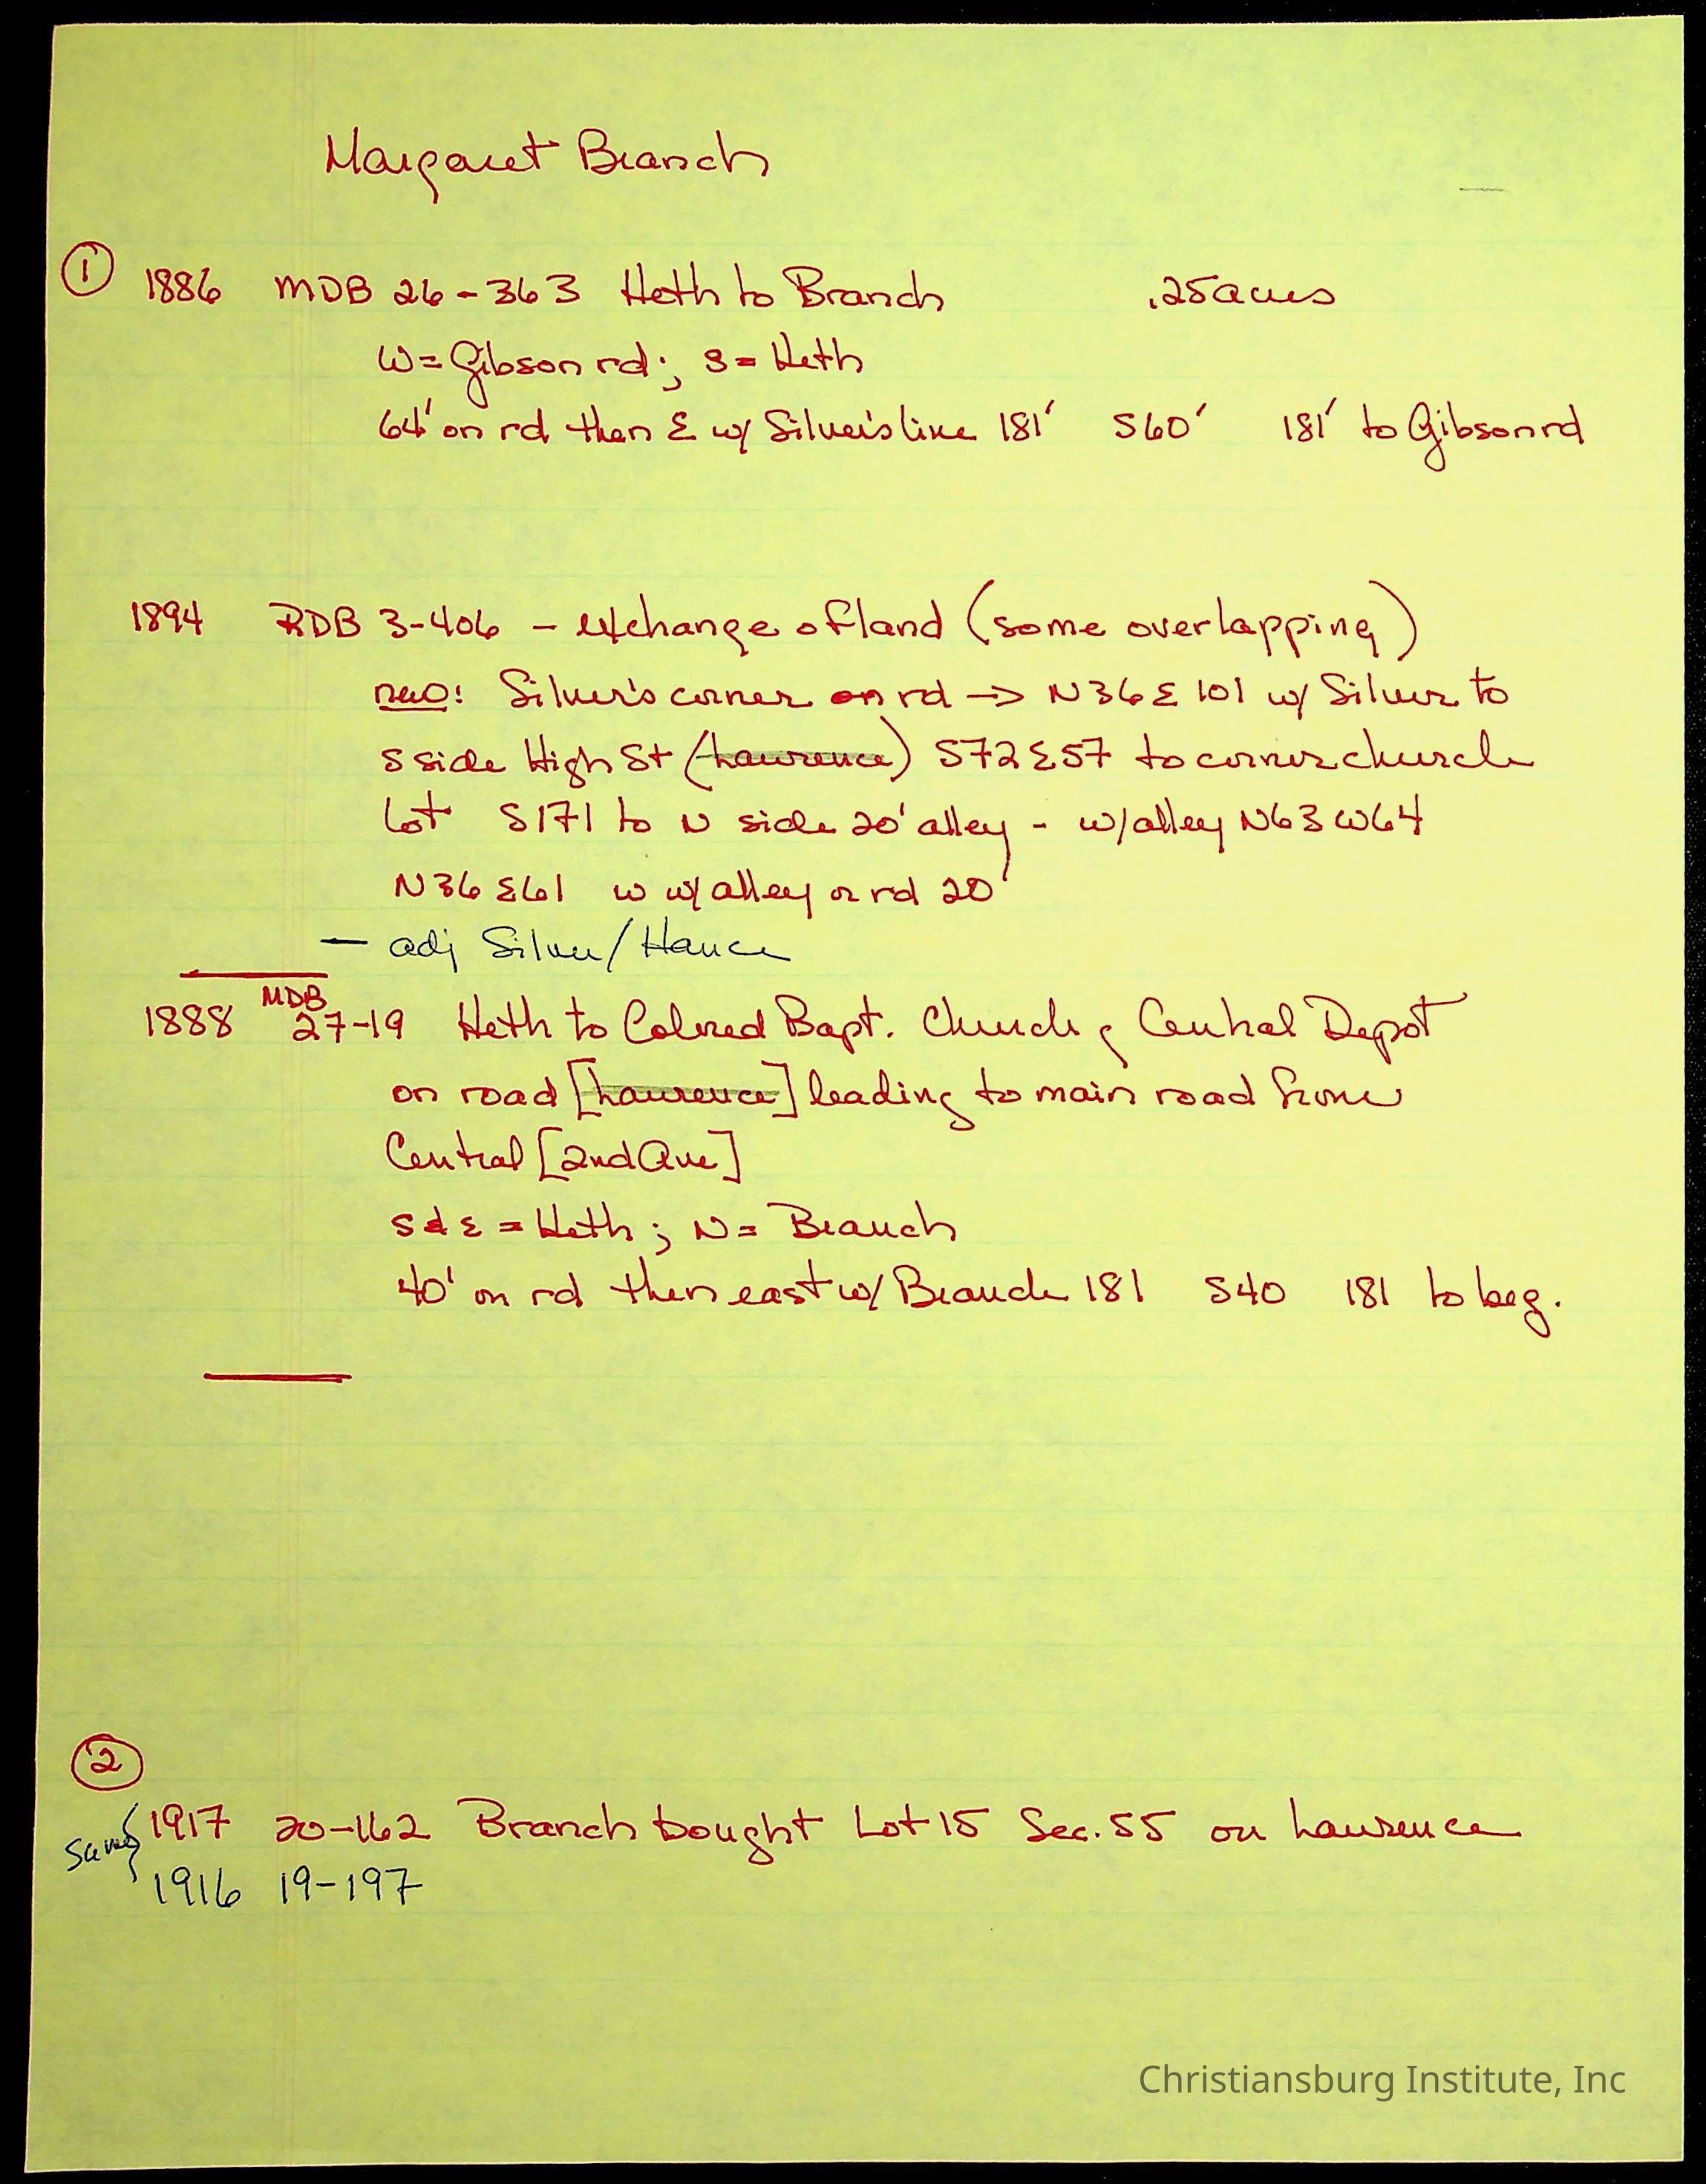 Margaret Branch
① 1886 MDB 26-363 Heth to Branch .25 acres
W = Gibson rd; S = Heth
64' on rd then E w/ Silver's line 181' S60' 181' to Gibson rd
1894 RDB 3-406 - exchange of land (some overlapping)
new: Silver's corner on rd → N36E 101 w/ Silver to
S side High St (Lawrence) S72E57 to corner church
lot S171 to N side 20' alley - w/alley N63W64
N36E61 w w/alley or rd 20'
— adj Silver/Hance
1888 MDB 27-19 Heth to Colored Bapt. Church, Central Depot
on road [Lawrence] leading to main road from
Central [2nd Ave]
S & E = Heth; N = Branch
40' on rd then east w/ Branch 181 S40 181 to beg.
②
1917 20-162 Branch bought Lot 15 Sec. 55 on Lawrence
1916 19-197
Christiansburg Institute, Inc